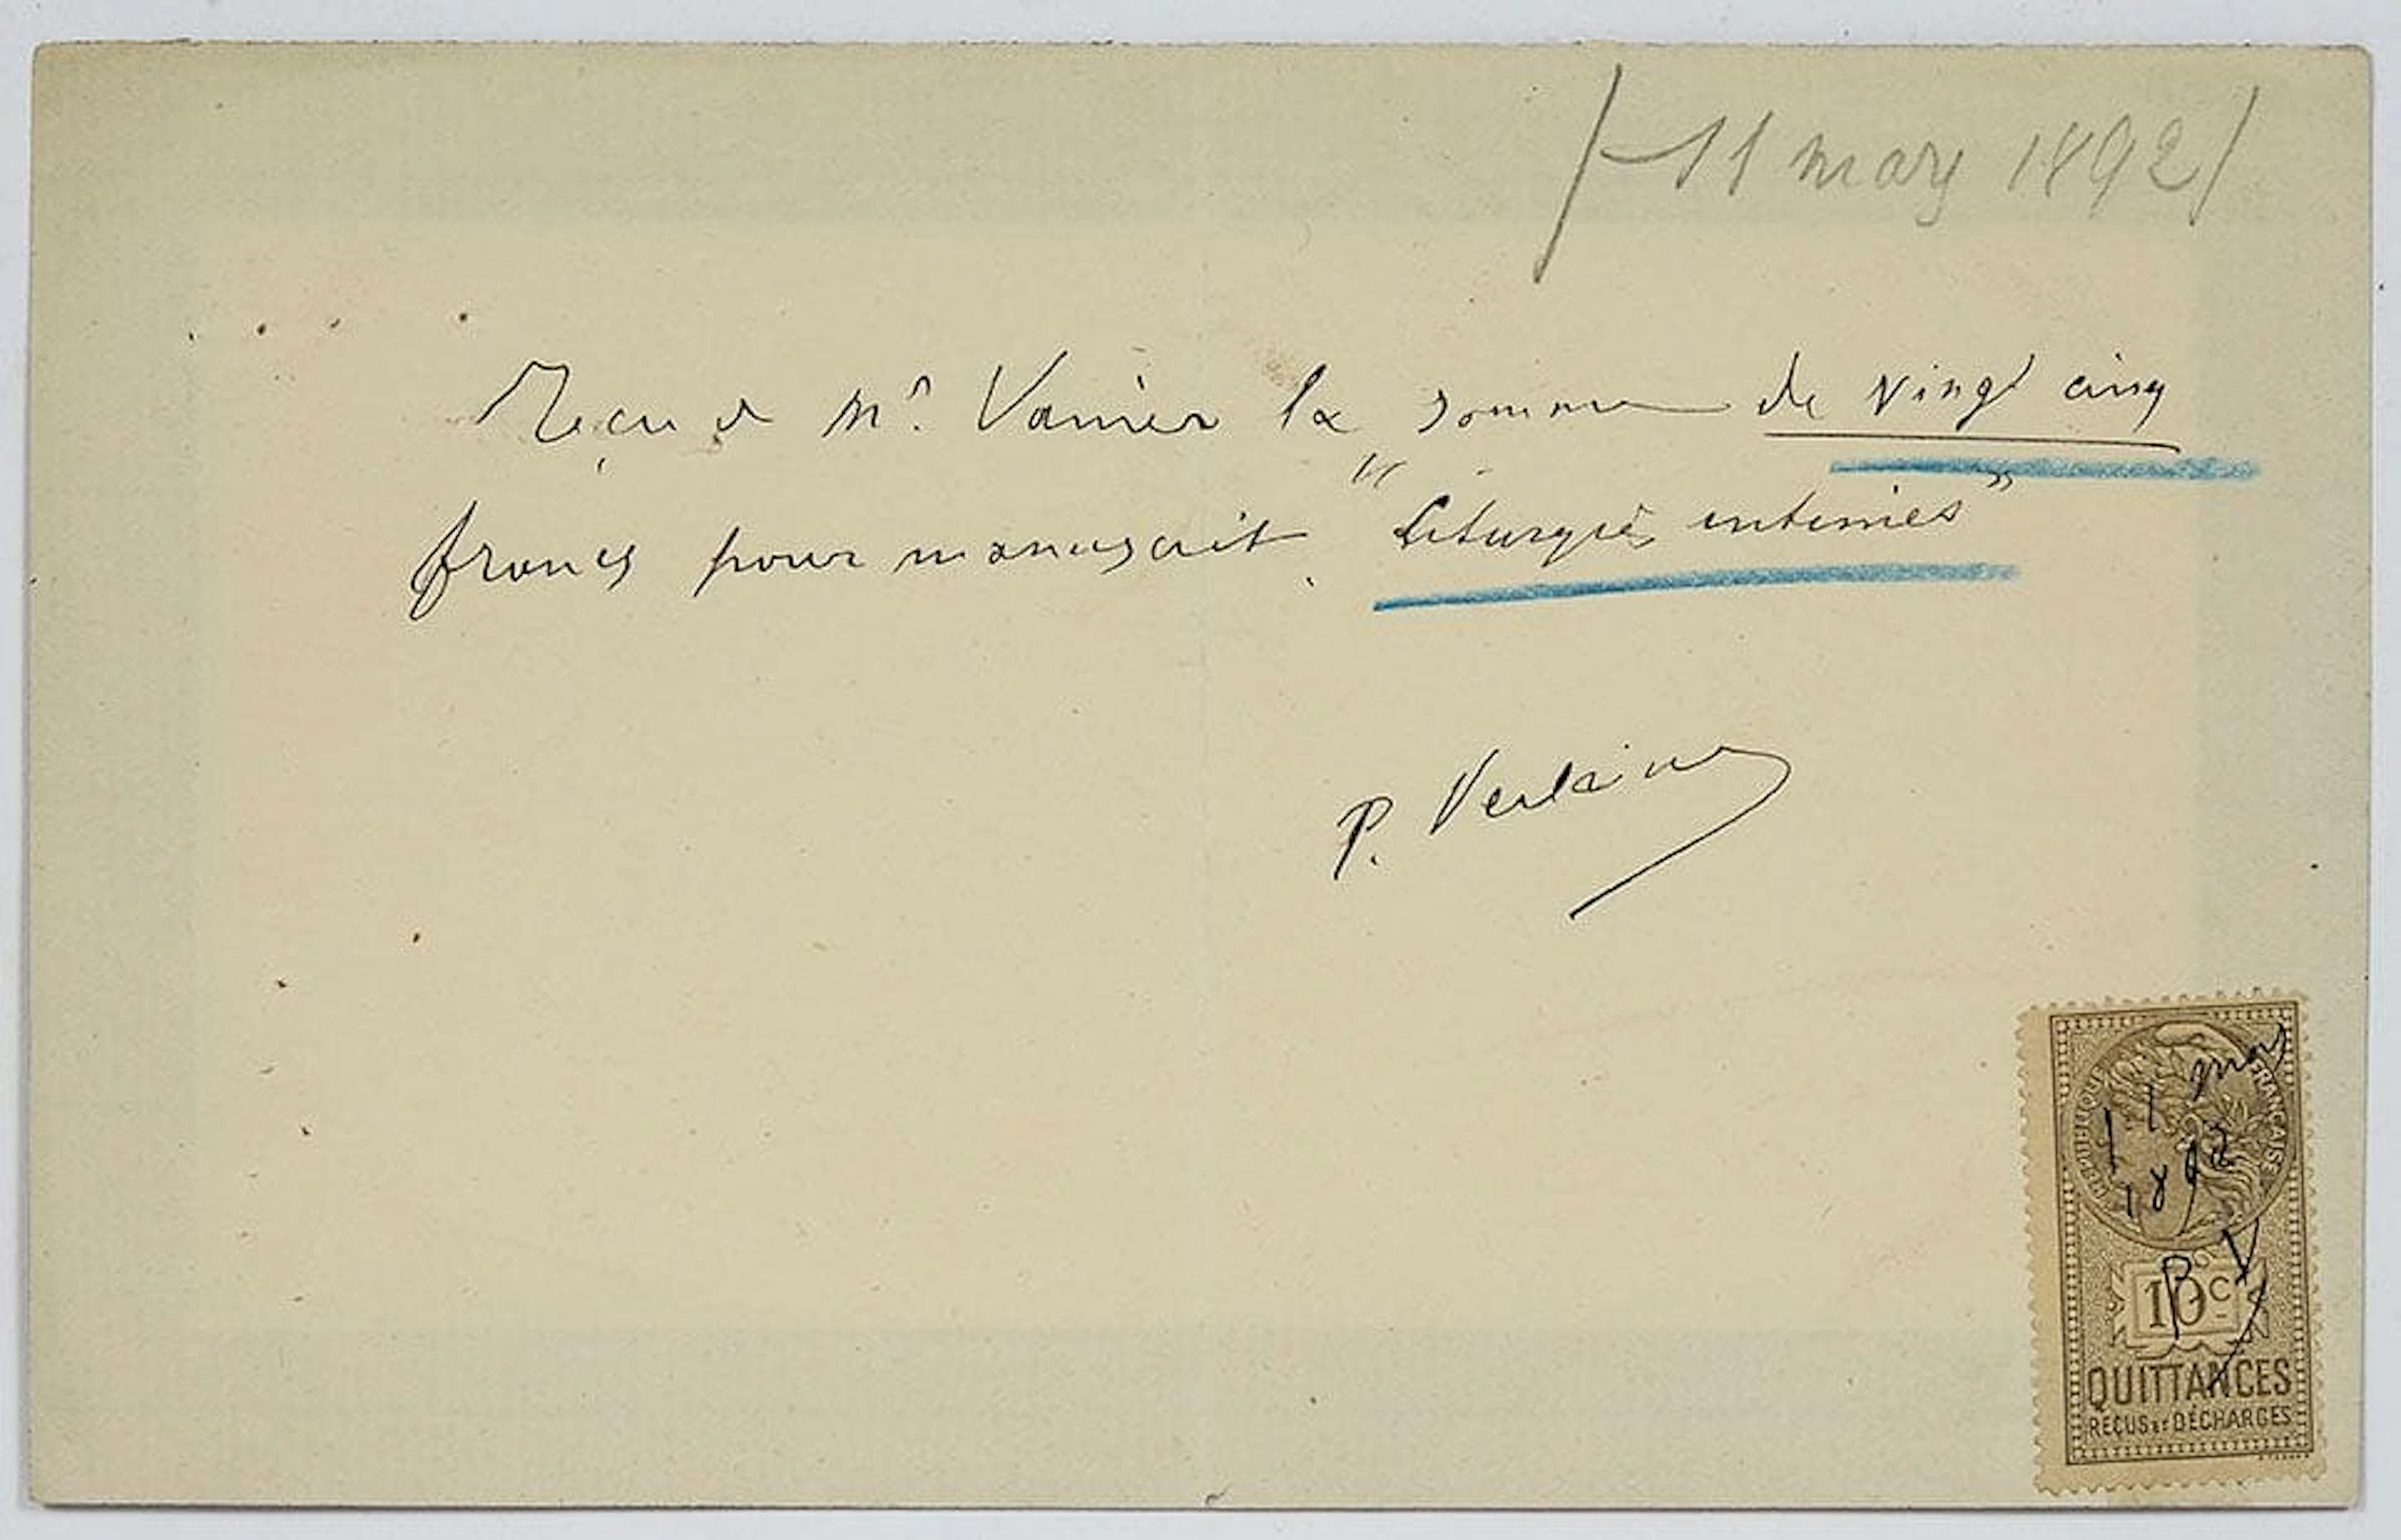 /-11 mars 1892/
Reçu de Mr. Vanier la somme de vingt cinq
francs pour manuscrit "Liturgies intimes"
P. Verlaine
RÉPUBLIQUE FRANÇAISE
11 mars
1892
P V
10c
QUITTANCES
REÇUS ET DÉCHARGES